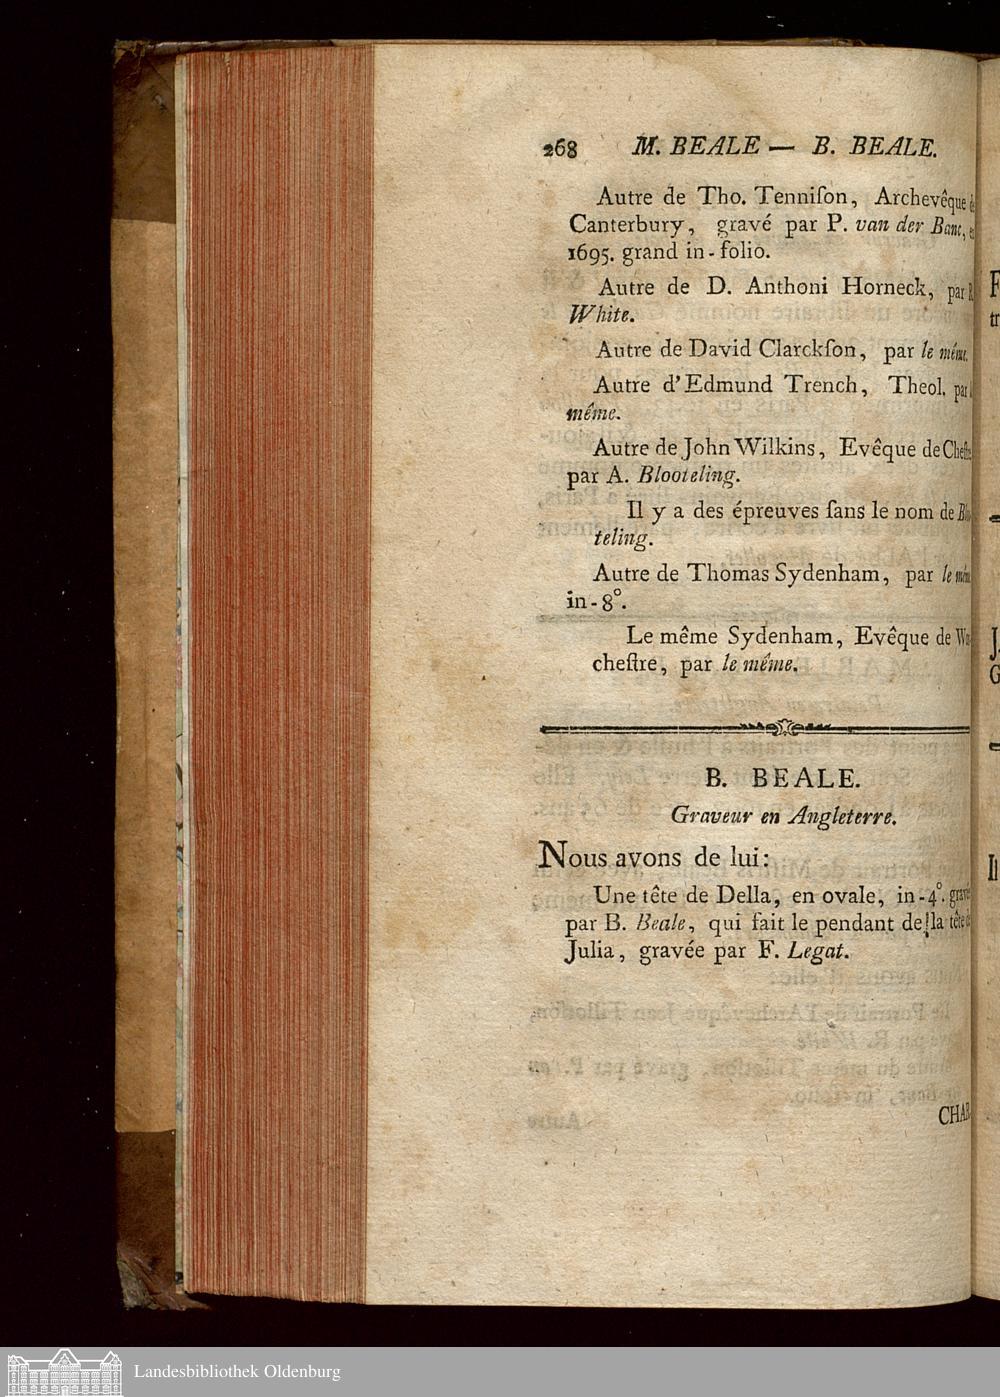 268 M. BEALE — B. BEALE.
Autre de Tho. Tenniſon, Archevêque
Canterbury, gravé par P. van der Banc,
1695. grand in-folio.
Autre de D. Anthoni Horneck, par R.
White.
Autre de David Clarckſon, par le même.
Autre d'Edmund Trench, Theol. par
même.
Autre de John Wilkins, Evêque de
par A. Blooteling.
Il y a des épreuves ſans le nom de
teling.
Autre de Thomas Sydenham, par le
in-8°.
Le même Sydenham, Evêque de
cheſtre, par le même.
B. BEALE.
Graveur en Angleterre.
Nous avons de lui:
Une tête de Della, en ovale, in-4°.
par B. Beale, qui fait le pendant de la tête
Julia, gravée par F. Legat.
CHAR
Landesbibliothek Oldenburg